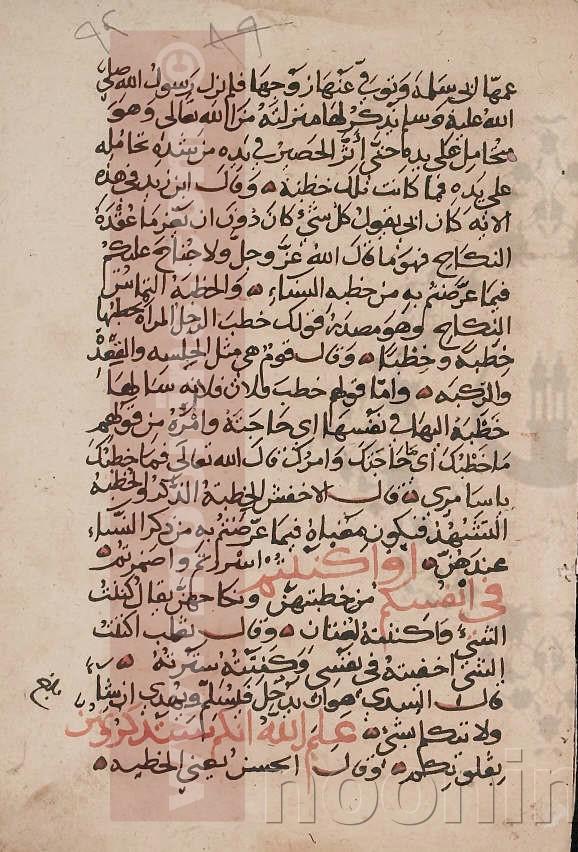 ٩٤ ٨٩
عمها ابي سلمة وتوفي عنها زوجها فلم يزل رسول الله صلى
الله عليه وسلم يذكر لها منزلته من الله تعالى وهو
متحامل على يده حتى أثر الحصير في يده من شدة تحامله
على يده فما كانت تلك خطبة وقال ابن زيد في هذه
الاية كان ابي يقول كل شيء كان دون ان تعزما عقدة
النكاح فهو ما قال الله عز وجل ولا جناح عليكم
فيما عرضتم به من خطبة النساء والخطبة التماس
النكاح وهو مصدر قولك خطب الرجل المرأة يخطبها
خطبة وخطبا وقال قوم هي مثل الجلسة والقعدة
والركبة واما قولهم خطب فلان فلانة سألها
خطبة اليها في نفسها اي حاجته وامره من قولهم
ما خطبك اي ما حاجتك وامرك قال الله تعالى فما خطبك
يا سامري قال الاخفش الخطبة الذكر والخطبة
التشهد فيكون معناه فيما عرضتم به من ذكر النساء
عندهن او اكننتم اسررتم واضمرتم
في انفسكم من خطبتهن ونكاحهن يقال كننت
الشيء واكننته لغتان وقال ثعلب اكننت
الشيء اخفيته في نفسي وكننته سترته
قال السدي هو ان يدخل فيسلم ويهدي ان شاء
ولا يتكلم بشيء علم الله انكم ستذكرونهن
بقلوبكم وقال الحسن يعني الخطبة
noonin